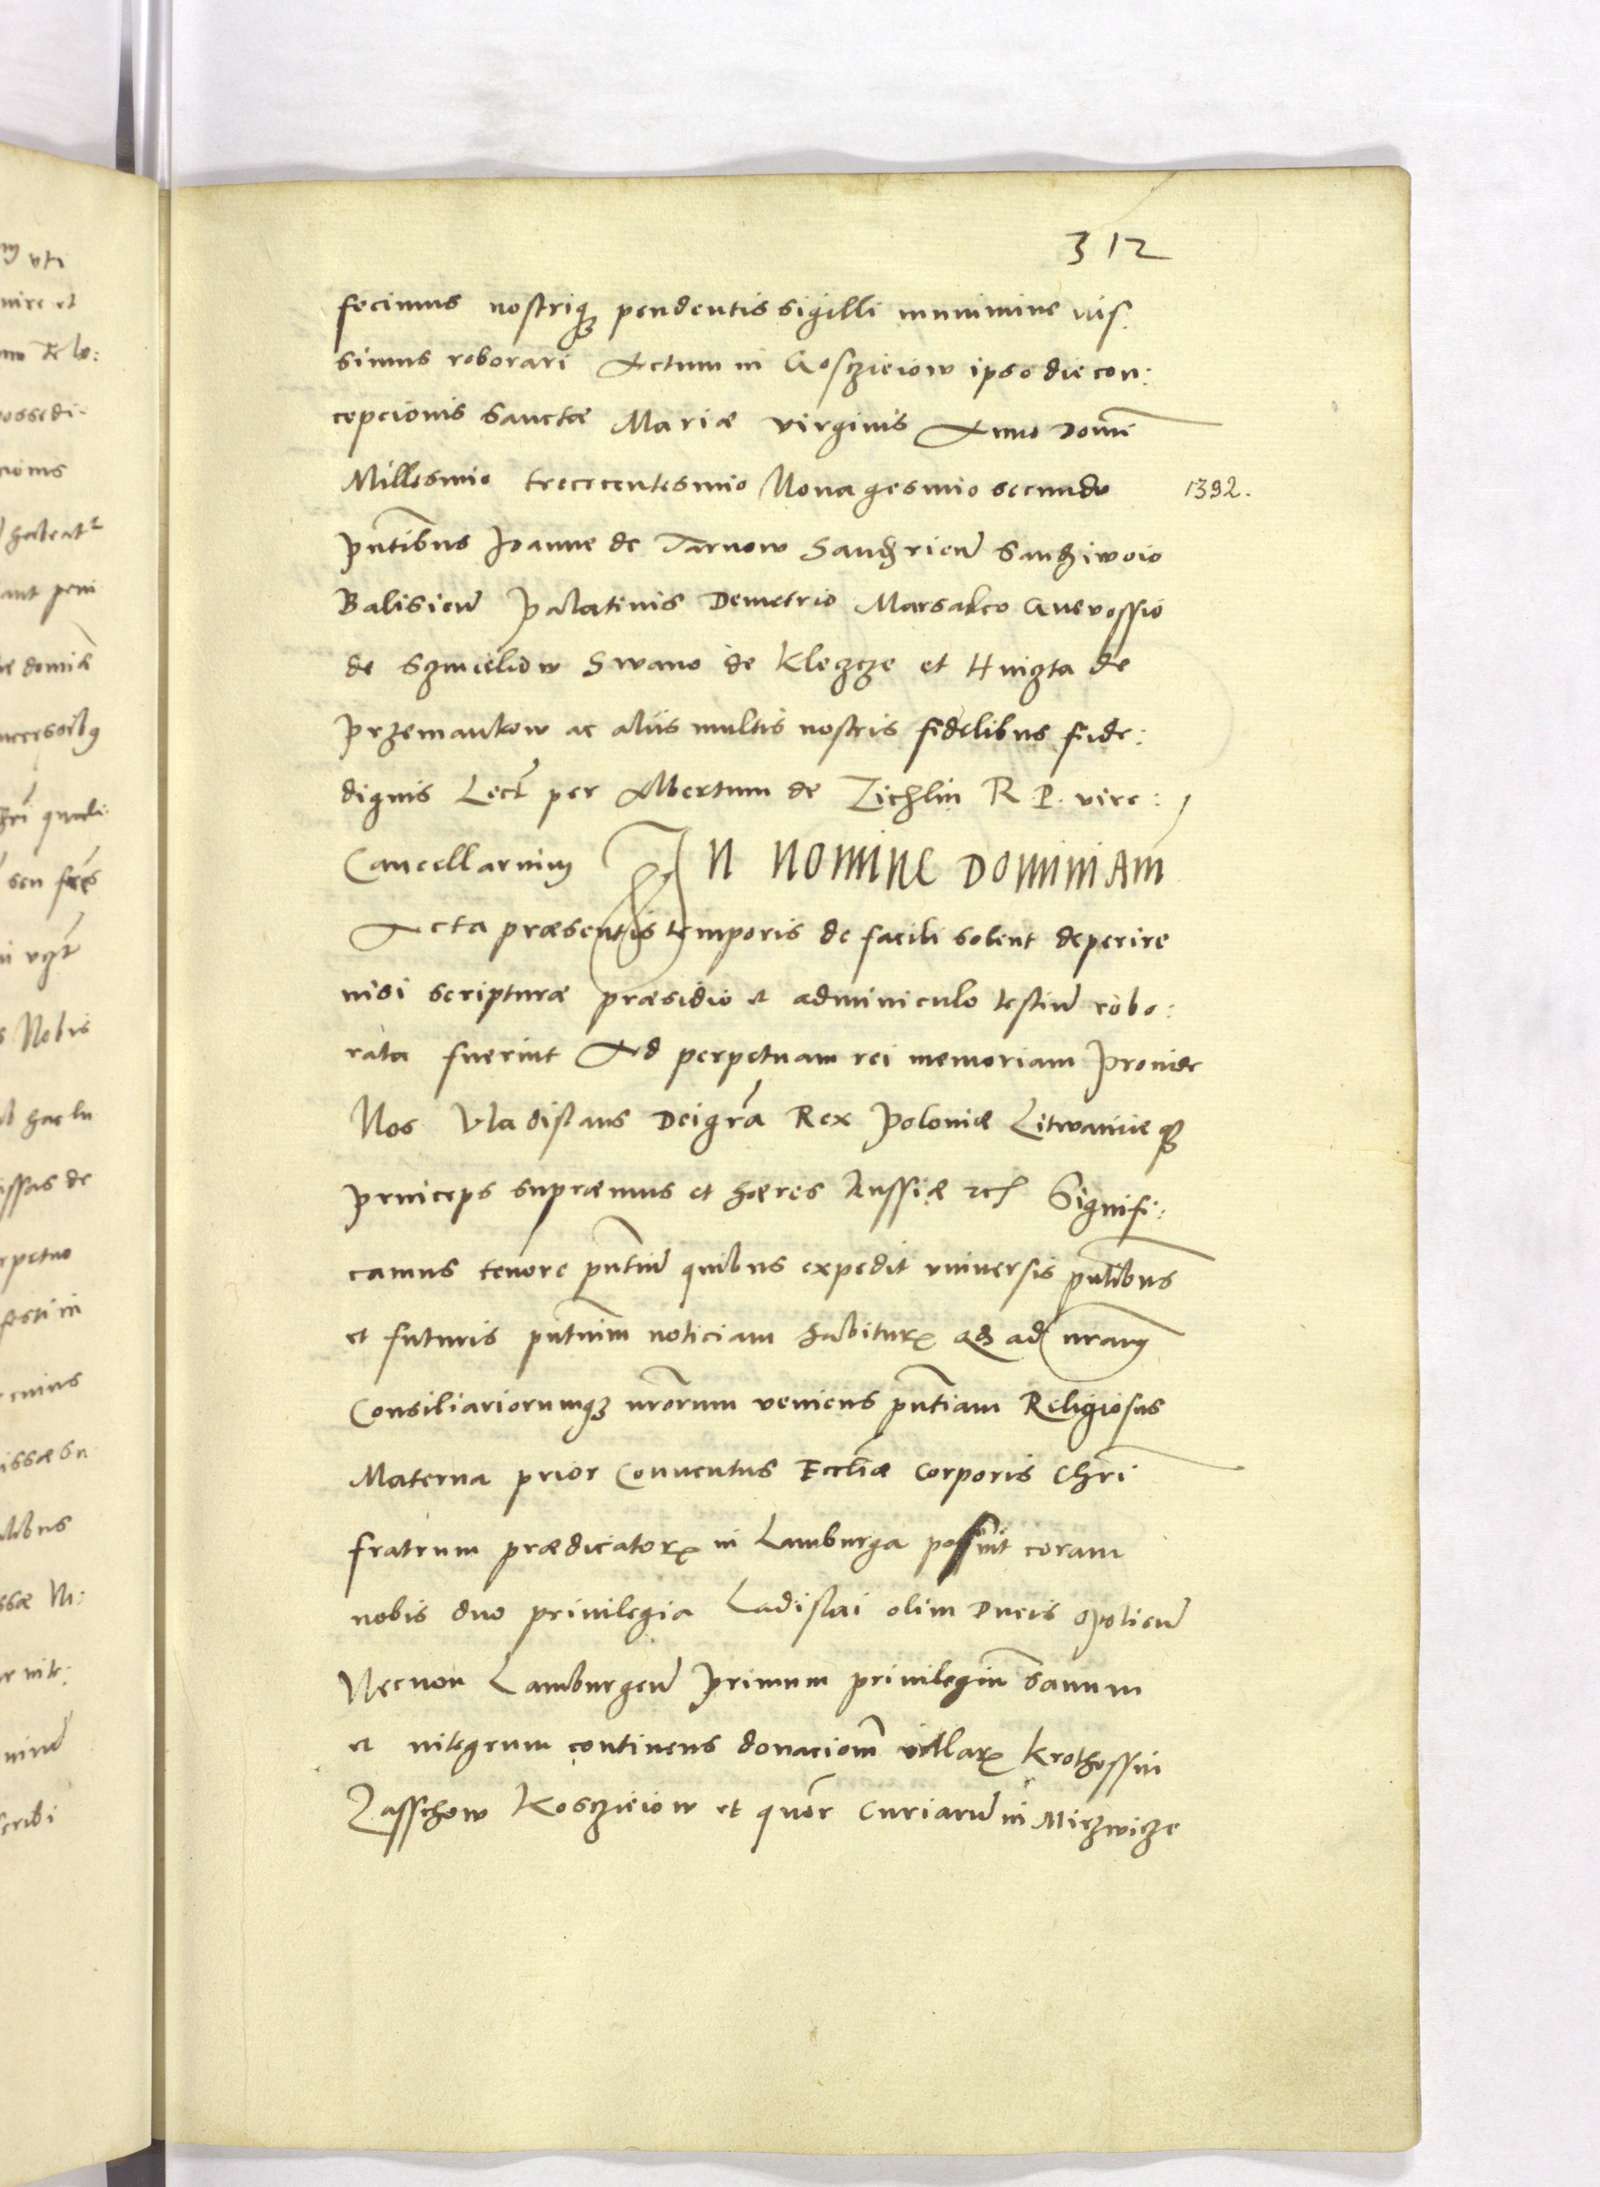 312
fecimus nostriq3 pendentis sigilli munimine jus:
simus roborari Actum in Gosczieiow ipso die con:
cepcionis sanctæ Mariæ virginis Anno Domi
Millesimo trececentesimo Nonagesimo secundo 1392.
Pntibus Joanne de Tarnow Sandzrien Sandziwoio
Balisien Palatinis Demetrio Marsalco Gneuossio
de Szmielow Swano de Klezcze et Hnizta de
Przemankow ac alijs multis nostris fidelibus fide:
dignis Lect per Albertum de Zichlin R P. vice:
Cancellarium In nomine Domini Am
Acta præsentis temporis de facili solent deperire
nisi scripturæ præsidio et adminiculo testium robo:
rata fuerint Ad perpetuam rei memoriam Provide
Nos Vladislaus Dei gra Rex Poloniæ Litwaniæq3
Princeps supræmus et hæres Russiæ etc Signifi:
camus tenore pntium quibus expedit vniuersis pntibus
et futuris pntium noticiam habitur qd ad nram
Consiliariorumq3 nrorum veniens pntiam Religiosus
Materna prior Conuentus Eccliæ Corporis Chri
fratrum prædicator in Lamburga posuit coram
nobis duo priuilegia Ladislai olim Ducis Opolien
Necnon Lamburgen Primum priuilegium sanum
et integrum continens donacionem villar Krothossin
Zasschow Kosczieiow et quor Curiarum in Miczwicze